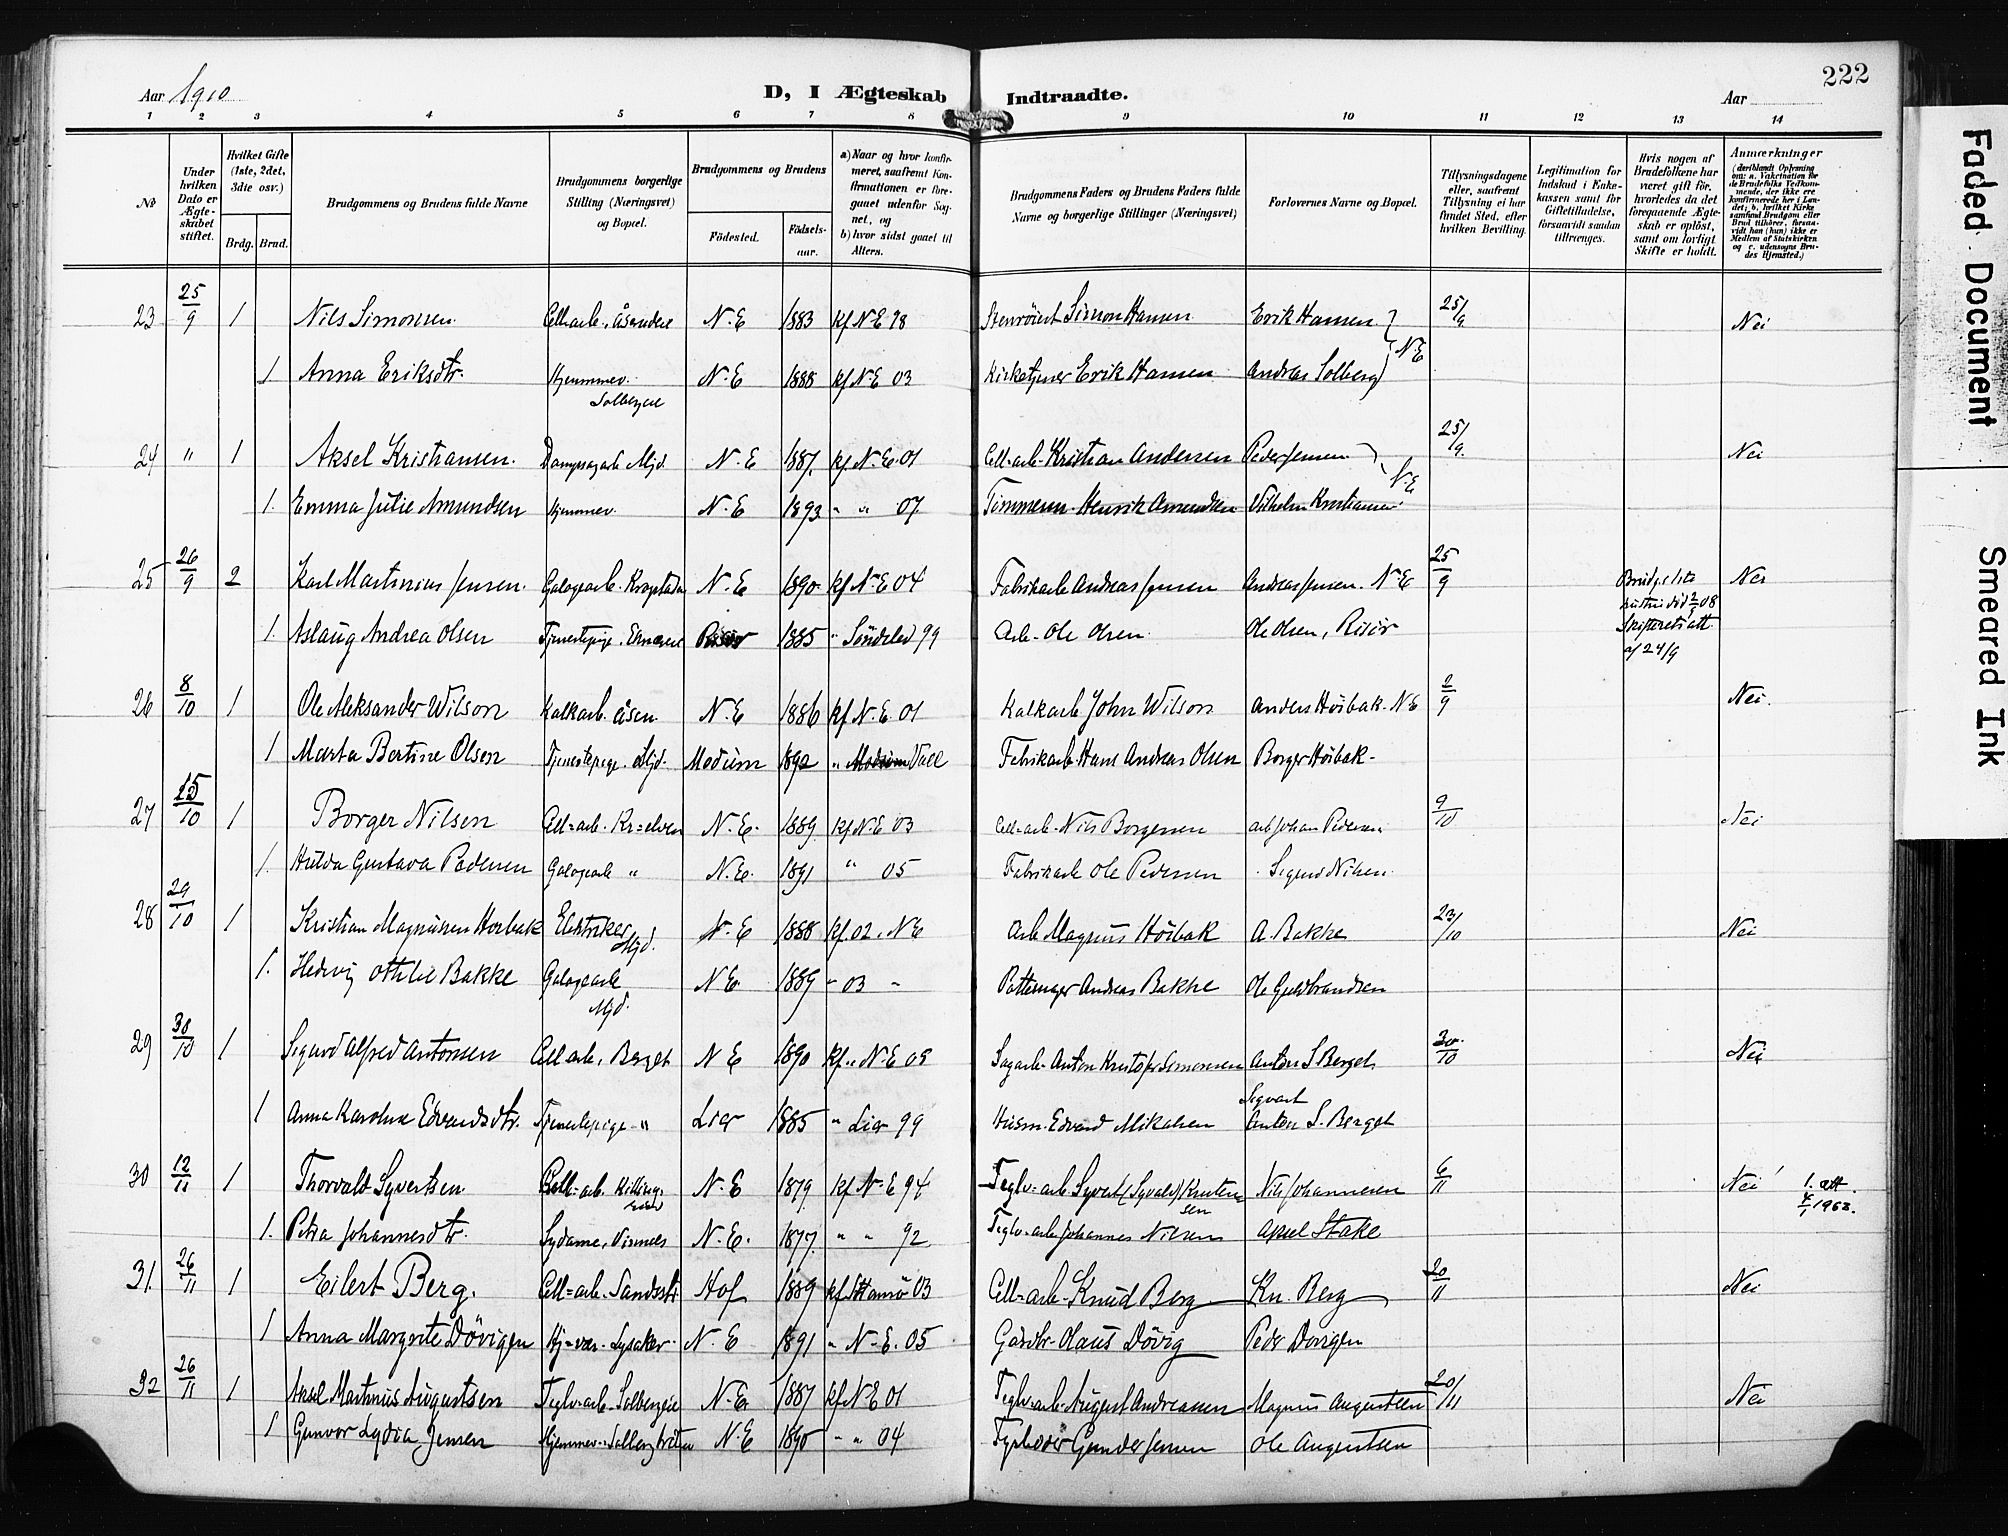 222
Aar 1910
D, I Ægteskab Indtraadte.
Aar
1 2 3 4 5 6 7 8 9 10 11 12 13 14
No
Under hvilken Dato er Ægteskabet stiftet.
Hvilket Gifte (1ste, 2det, 3die osv.)
Brdg. Brud.
Brudgommens og Brudens fulde Navne
Brudgommens borgerlige Stilling (Næringsvei) og Bopæl.
Brudgommens og Brudens
Fødested. Fødselsaar.
a) Naar og hvor konfirmeret, saafremt Konfirmationen er foregaaet udenfor Sognet, og
b) hvor sidst gaaet til Alters.
Brudgommens Faders og Brudens Faders fulde Navne og borgerlige Stillinger (Næringsvei)
Forlovernes Navne og Bopæl.
Tillysningsdagene eller, saafremt Tillysning ei har fundet Sted, efter hvilken Bevilling.
Legitimation for Indskud i Enkekassen samt for Giftetilladelse, forsaavidt saadan tiltrænges.
Hvis nogen af Brudefolkene har været gift før, hvorledes da det foregaaende Ægteskab er opløst, samt om lovligt Skifte er holdt.
Anmærkninger
23 25/9 1 Nils Simonsen Cell=arb. N.E 1883 kf N.E 98 Simon Hansen Erik Hansen 25/9 Nei
1 Anna Eriksdtr. Hjemmev. Solbergene N.E 1888 kf N.E 03 Kirketjener Erik Hansen Andreas Solberg N.E
24 " 1 Aksel Kristiansen. Dampsagarb. Mjd. N.E 1887. kf N.E. 01 Cell=arb. Kristian Andersen Peder Jensen 25/9 Nei
1. Emma Julie Amundsen Hjemmev. N.E 1893 " " 07 Tømmerm. Henrik Amundsen Vilhelm Kristiansen N.E
25 26/9 2 Karl Martinius Jensen. Galogearb. Krogstad N.E 1890 kf N.E 04 Fabrikarb. Andreas Jensen Andreas Jensen. N.E 25/9 Nei
1. Aslaug Andrea Olsen Tjenestepige. Risør 1885 " Søndeled 99 Arb. Ole Olsen Ole Olsen, Risør
af 24/9
26 8/10 1 Ole Aleksander Wilson Kalkarb. Åsen N.E 1886 kf N.E 01 Kalkarb. John Wilson Anders Høibak. N.E 2/9 Nei.
1 Marta Bertine Olsen Tjenestepige. Mjd. Modum 1892 " Modum Fabrikarb. Hans Andreas Olsen Borger Høibak.
27 15/10 1 Borger Nilsen Cell=arb. Kr=elven N.E. 1889 kf N.E 03 Cell=arb. Nils Borgersen arb Johan Pedersen 9/10 Nei
1. Hulda Gustava Pedersen Galogearb " N.E. 1891 " 05 Fabrikarb Ole Pedersen Sigurd Nilsen
28 29/10 1 Kristian Magnusen Høibak Elektriker Mjd. N.E 1888 kf. 02. N.E Arb Magnus Høibak A. Bakke 23/10 Nei
1. Hedvig Othilie Bakke Galogearb Mjd. N.E. 1889 " 03 " Pottemager Andreas Bakke Ole Guldbrandsen
29 30/10 1 Sigurd Alfred Antonsen Cell arb. Berget N E 1890 kf. N.E 05 Sagarb. Anton Kristofer Simonsen Anton S Berget 30/10 Nei
1 Anna Karoline Edvardsdtr. Tjenestepige " Lier 1885 " Lier 99 Husm. Edvard Mikalsen Sigvart Anton S. Berget
30 12/11 1 Thorvald Syvertsen Cell=arb. N.E 1879 kf N.E 94 Teglv=arb Syvert (Syvald) Knutensen Nils Johannesen 6/11 Nei 1. att. 4/1 1963.
1. Petra Johannesdtr. Sydame, N.E. 1877. " " 92 Teglv=arb Johannes Nilsen Aksel Stake
31 26/11 1 Eilert Berg. Cell=arb. Sandsstr. Hof 1889 kf Strømsø 03 Cell=arb. Knud Berg Kn. Berg 20/11 Nei
1 Anna Margrete Døvigen Hj=vær. Lysaker N.E 1891 " N.E. 05 Gårdbr. Olaus Døvig Peder Døvigen
32 26/11 1 Aksel Martinus Augustsen Teglv=arb. Solbergeie N.E 1887 kf N.E 01 Teglv=arb. August Andreassen Magnus Augustsen 20/11 Nei
1 Gunvor Lydia Jensen Hjemmev. N.E 1890 " " 04 Fyrbøder Gunder Jensen Ole Augustsen
Faded Document
Smeared Ink